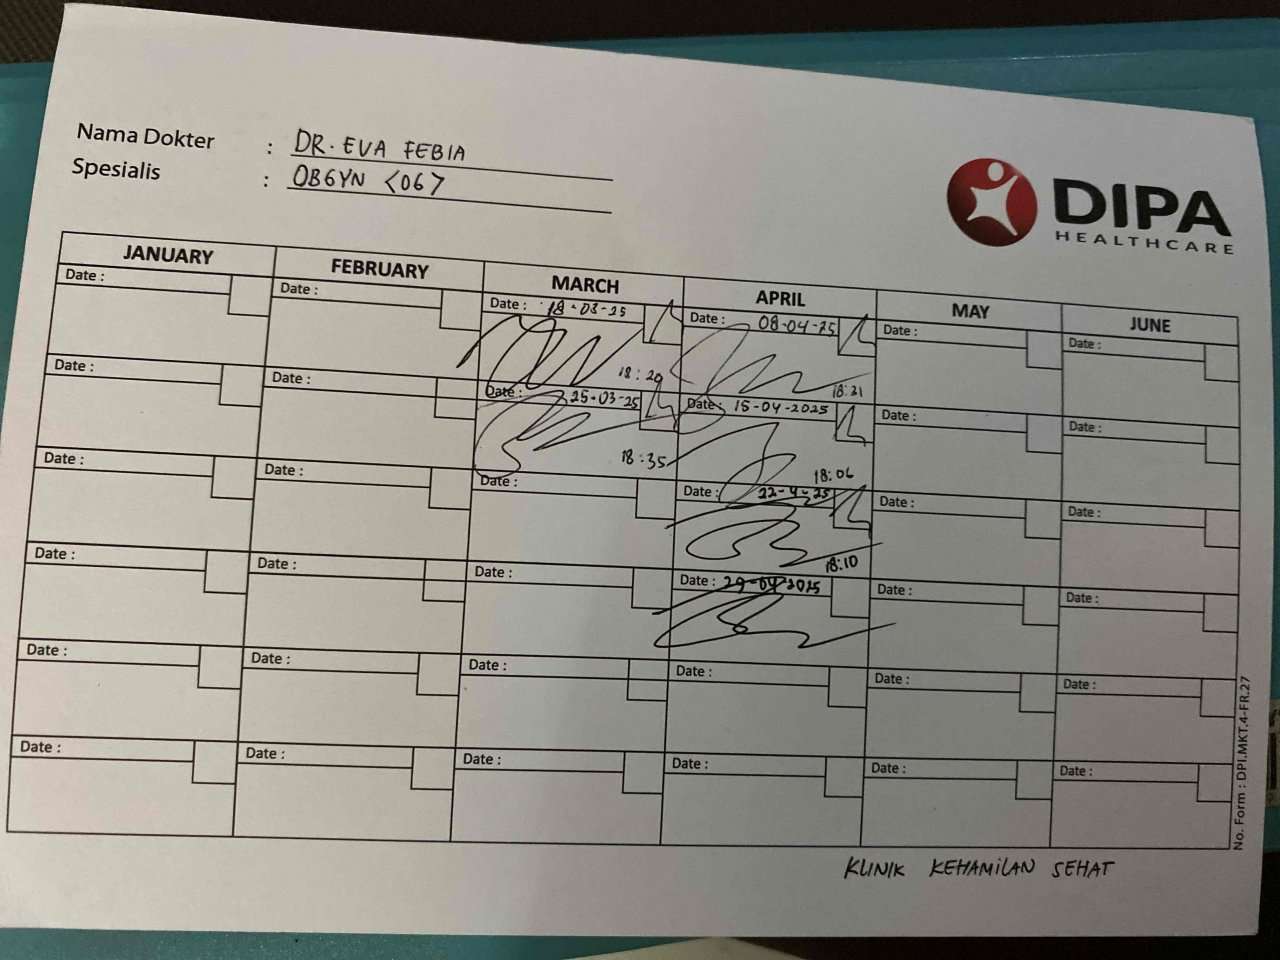 Nama Dokter : DR. EVA FEBIA
Spesialis : OBGYN <06>
DIPA
HEALTHCARE
JANUARY FEBRUARY MARCH APRIL MAY JUNE
Date : Date : Date : 18-03-25 Date : 08-04-25 Date : Date :
18:20 18:21
Date : Date : Date : 25-03-25 Date : 15-04-2025 Date : Date :
18:35 18:06
Date : Date : Date : Date : 22-4-25 Date : Date :
18:10
Date : Date : Date : Date : 29-04-2025 Date : Date :
Date : Date : Date : Date : Date : Date :
Date : Date : Date : Date : Date : Date :
No. Form : DPI.MKT.4-FR.27
KLINIK KEHAMILAN SEHAT